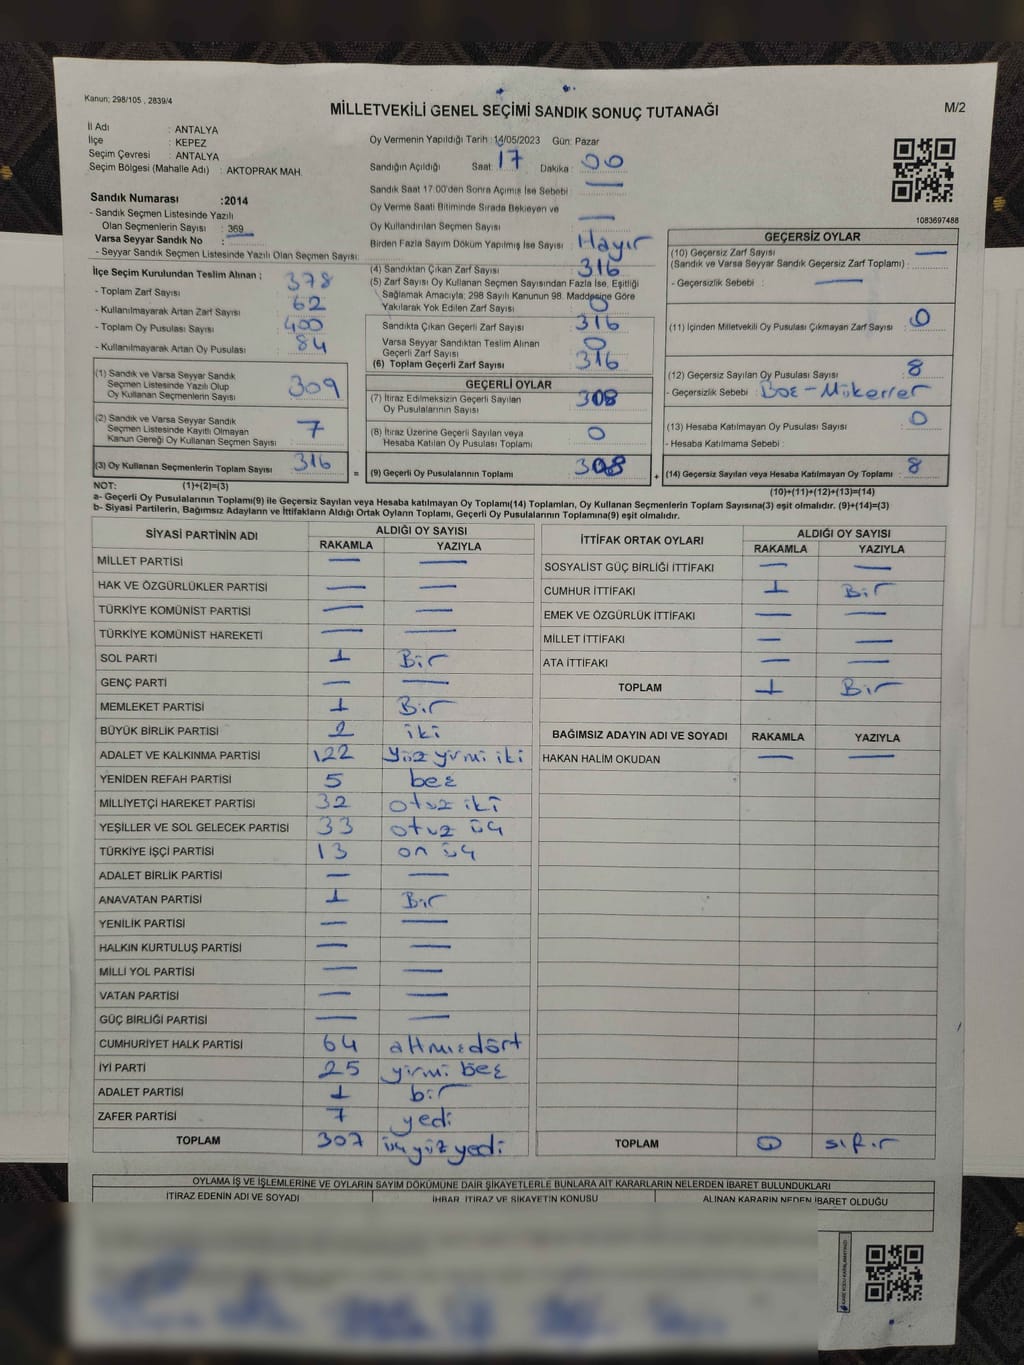 Kanun; 298/105 , 2839/4
MİLLETVEKİLİ GENEL SEÇİMİ SANDIK SONUÇ TUTANAĞI
M/2
İl Adı : ANTALYA
İlçe : KEPEZ
Seçim Çevresi : ANTALYA
Seçim Bölgesi (Mahalle Adı) : AKTOPRAK MAH.
Sandık Numarası :2014
- Sandık Seçmen Listesinde Yazılı
Olan Seçmenlerin Sayısı : 369
Varsa Seyyar Sandık No :
- Seyyar Sandık Seçmen Listesinde Yazılı Olan Seçmen Sayısı:
Oy Vermenin Yapıldığı Tarih : 14/05/2023 Gün: Pazar
Sandığın Açıldığı Saat: 17 Dakika : 00
Sandık Saat 17:00'den Sonra Açımış İse Sebebi : —
Oy Verme Saati Bitiminde Sırada Bekleyen ve
Oy Kullandırılan Seçmen Sayısı : —
Birden Fazla Sayım Döküm Yapılmış İse Sayısı : Hayır
1083697488
İlçe Seçim Kurulundan Teslim Alınan ;
- Toplam Zarf Sayısı 378
- Kullanılmayarak Artan Zarf Sayısı 62
- Toplam Oy Pusulası Sayısı 400
- Kullanılmayarak Artan Oy Pusulası 84
(1) Sandık ve Varsa Seyyar Sandık
Seçmen Listesinde Yazılı Olup
Oy Kullanan Seçmenlerin Sayısı : 309
(2) Sandık ve Varsa Seyyar Sandık
Seçmen Listesinde Kayıtlı Olmayan
Kanun Gereği Oy Kullanan Seçmen Sayısı : 7
(3) Oy Kullanan Seçmenlerin Toplam Sayısı : 316
(4) Sandıktan Çıkan Zarf Sayısı : 316
(5) Zarf Sayısı Oy Kullanan Seçmen Sayısından Fazla İse, Eşitliği
Sağlamak Amacıyla; 298 Sayılı Kanunun 98. Maddesine Göre
Yakılarak Yok Edilen Zarf Sayısı : 0
Sandıkta Çıkan Geçerli Zarf Sayısı : 316
Varsa Seyyar Sandıktan Teslim Alınan
Geçerli Zarf Sayısı : 0
(6) Toplam Geçerli Zarf Sayısı : 316
GEÇERLİ OYLAR
(7) İtiraz Edilmeksizin Geçerli Sayılan
Oy Pusulalarının Sayısı : 308
(8) İtiraz Üzerine Geçerli Sayılan veya
Hesaba Katılan Oy Pusulası Toplamı : 0
= (9) Geçerli Oy Pusulalarının Toplamı : 308 +
GEÇERSİZ OYLAR
(10) Geçersiz Zarf Sayısı —
(Sandık ve Varsa Seyyar Sandık Geçersiz Zarf Toplamı) :
- Geçersizlik Sebebi : —
(11) İçinden Milletvekili Oy Pusulası Çıkmayan Zarf Sayısı : 0
(12) Geçersiz Sayılan Oy Pusulası Sayısı : 8
- Geçersizlik Sebebi : Boş - Mükerrer
(13) Hesaba Katılmayan Oy Pusulası Sayısı : 0
- Hesaba Katılmama Sebebi :
(14) Geçersiz Sayılan veya Hesaba Katılmayan Oy Toplamı : 8
(10)+(11)+(12)+(13)=(14)
NOT: (1)+(2)=(3)
a- Geçerli Oy Pusulalarının Toplamı(9) ile Geçersiz Sayılan veya Hesaba katılmayan Oy Toplamı(14) Toplamları, Oy Kullanan Seçmenlerin Toplam Sayısına(3) eşit olmalıdır. (9)+(14)=(3)
b- Siyasi Partilerin, Bağımsız Adayların ve İttifakların Aldığı Ortak Oyların Toplamı, Geçerli Oy Pusulalarının Toplamına(9) eşit olmalıdır.
SİYASİ PARTİNİN ADI ALDIĞI OY SAYISI
RAKAMLA YAZIYLA
MİLLET PARTİSİ — —
HAK VE ÖZGÜRLÜKLER PARTİSİ — —
TÜRKİYE KOMÜNİST PARTİSİ — —
TÜRKİYE KOMÜNİST HAREKETİ — —
SOL PARTİ 1 Bir
GENÇ PARTİ — —
MEMLEKET PARTİSİ 1 Bir
BÜYÜK BİRLİK PARTİSİ 2 iki
ADALET VE KALKINMA PARTİSİ 122 Yüz yirmi iki
YENİDEN REFAH PARTİSİ 5 beş
MİLLİYETÇİ HAREKET PARTİSİ 32 otuz iki
YEŞİLLER VE SOL GELECEK PARTİSİ 33 otuz üç
TÜRKİYE İŞÇİ PARTİSİ 13 on üç
ADALET BİRLİK PARTİSİ — —
ANAVATAN PARTİSİ 1 Bir
YENİLİK PARTİSİ — —
HALKIN KURTULUŞ PARTİSİ — —
MİLLİ YOL PARTİSİ — —
VATAN PARTİSİ — —
GÜÇ BİRLİĞİ PARTİSİ — —
CUMHURİYET HALK PARTİSİ 64 altmışdört
İYİ PARTİ 25 yirmi beş
ADALET PARTİSİ 1 bir
ZAFER PARTİSİ 7 yedi
TOPLAM 307 üçyüz yedi
İTTİFAK ORTAK OYLARI ALDIĞI OY SAYISI
RAKAMLA YAZIYLA
SOSYALİST GÜÇ BİRLİĞİ İTTİFAKI — —
CUMHUR İTTİFAKI 1 Bir
EMEK VE ÖZGÜRLÜK İTTİFAKI — —
MİLLET İTTİFAKI — —
ATA İTTİFAKI — —
TOPLAM 1 Bir
BAĞIMSIZ ADAYIN ADI VE SOYADI RAKAMLA YAZIYLA
HAKAN HALİM OKUDAN — —
TOPLAM 0 sıfır
OYLAMA İŞ VE İŞLEMLERİNE VE OYLARIN SAYIM DÖKÜMÜNE DAİR ŞİKAYETLERLE BUNLARA AİT KARARLARIN NELERDEN İBARET BULUNDUKLARI
İTİRAZ EDENİN ADI VE SOYADI İHBAR, İTİRAZ VE ŞİKAYETİN KONUSU ALINAN KARARIN NEDEN İBARET OLDUĞU